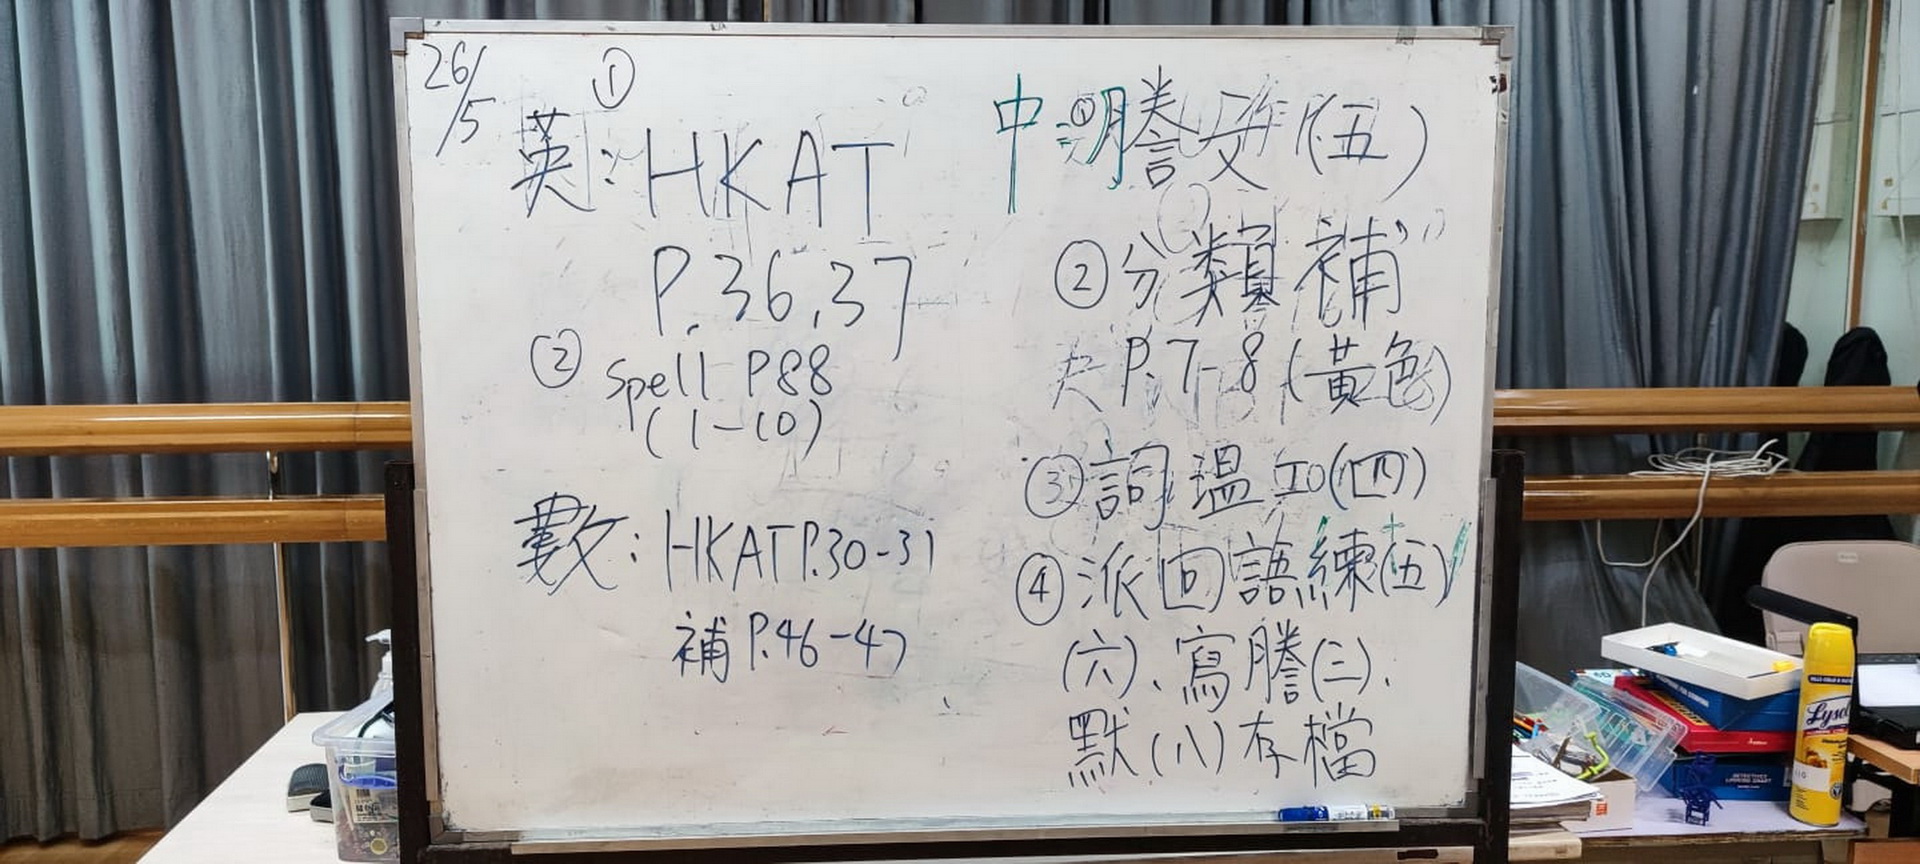 26/5
①
英: HKAT
P.36,37
② spell P88
(1-10)
數: HKAT P.30-31
補 P.46-47
中: ① 謄文(五)
② 分類補
P.7-8 (黃色)
③ 詞溫 (四)
④ 派回語練(五)
(六)、寫謄(三)、
默(八)存檔
Lysol